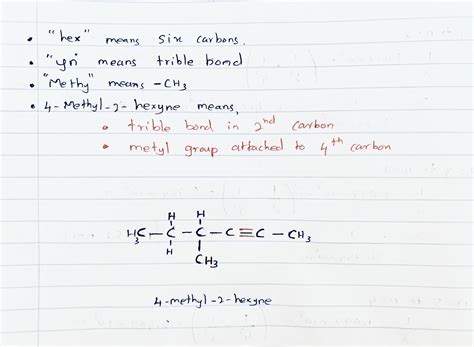 • "hex" means six carbons.
• "yn" means trible bond
• "Methy" means -CH3
• 4-Methyl-2-hexyne means,
• trible bond in 2nd carbon
• metyl group attached to 4th carbon
H H
H3C - C - C - C ≡ C - CH3
H CH3
4-methyl-2-hexyne